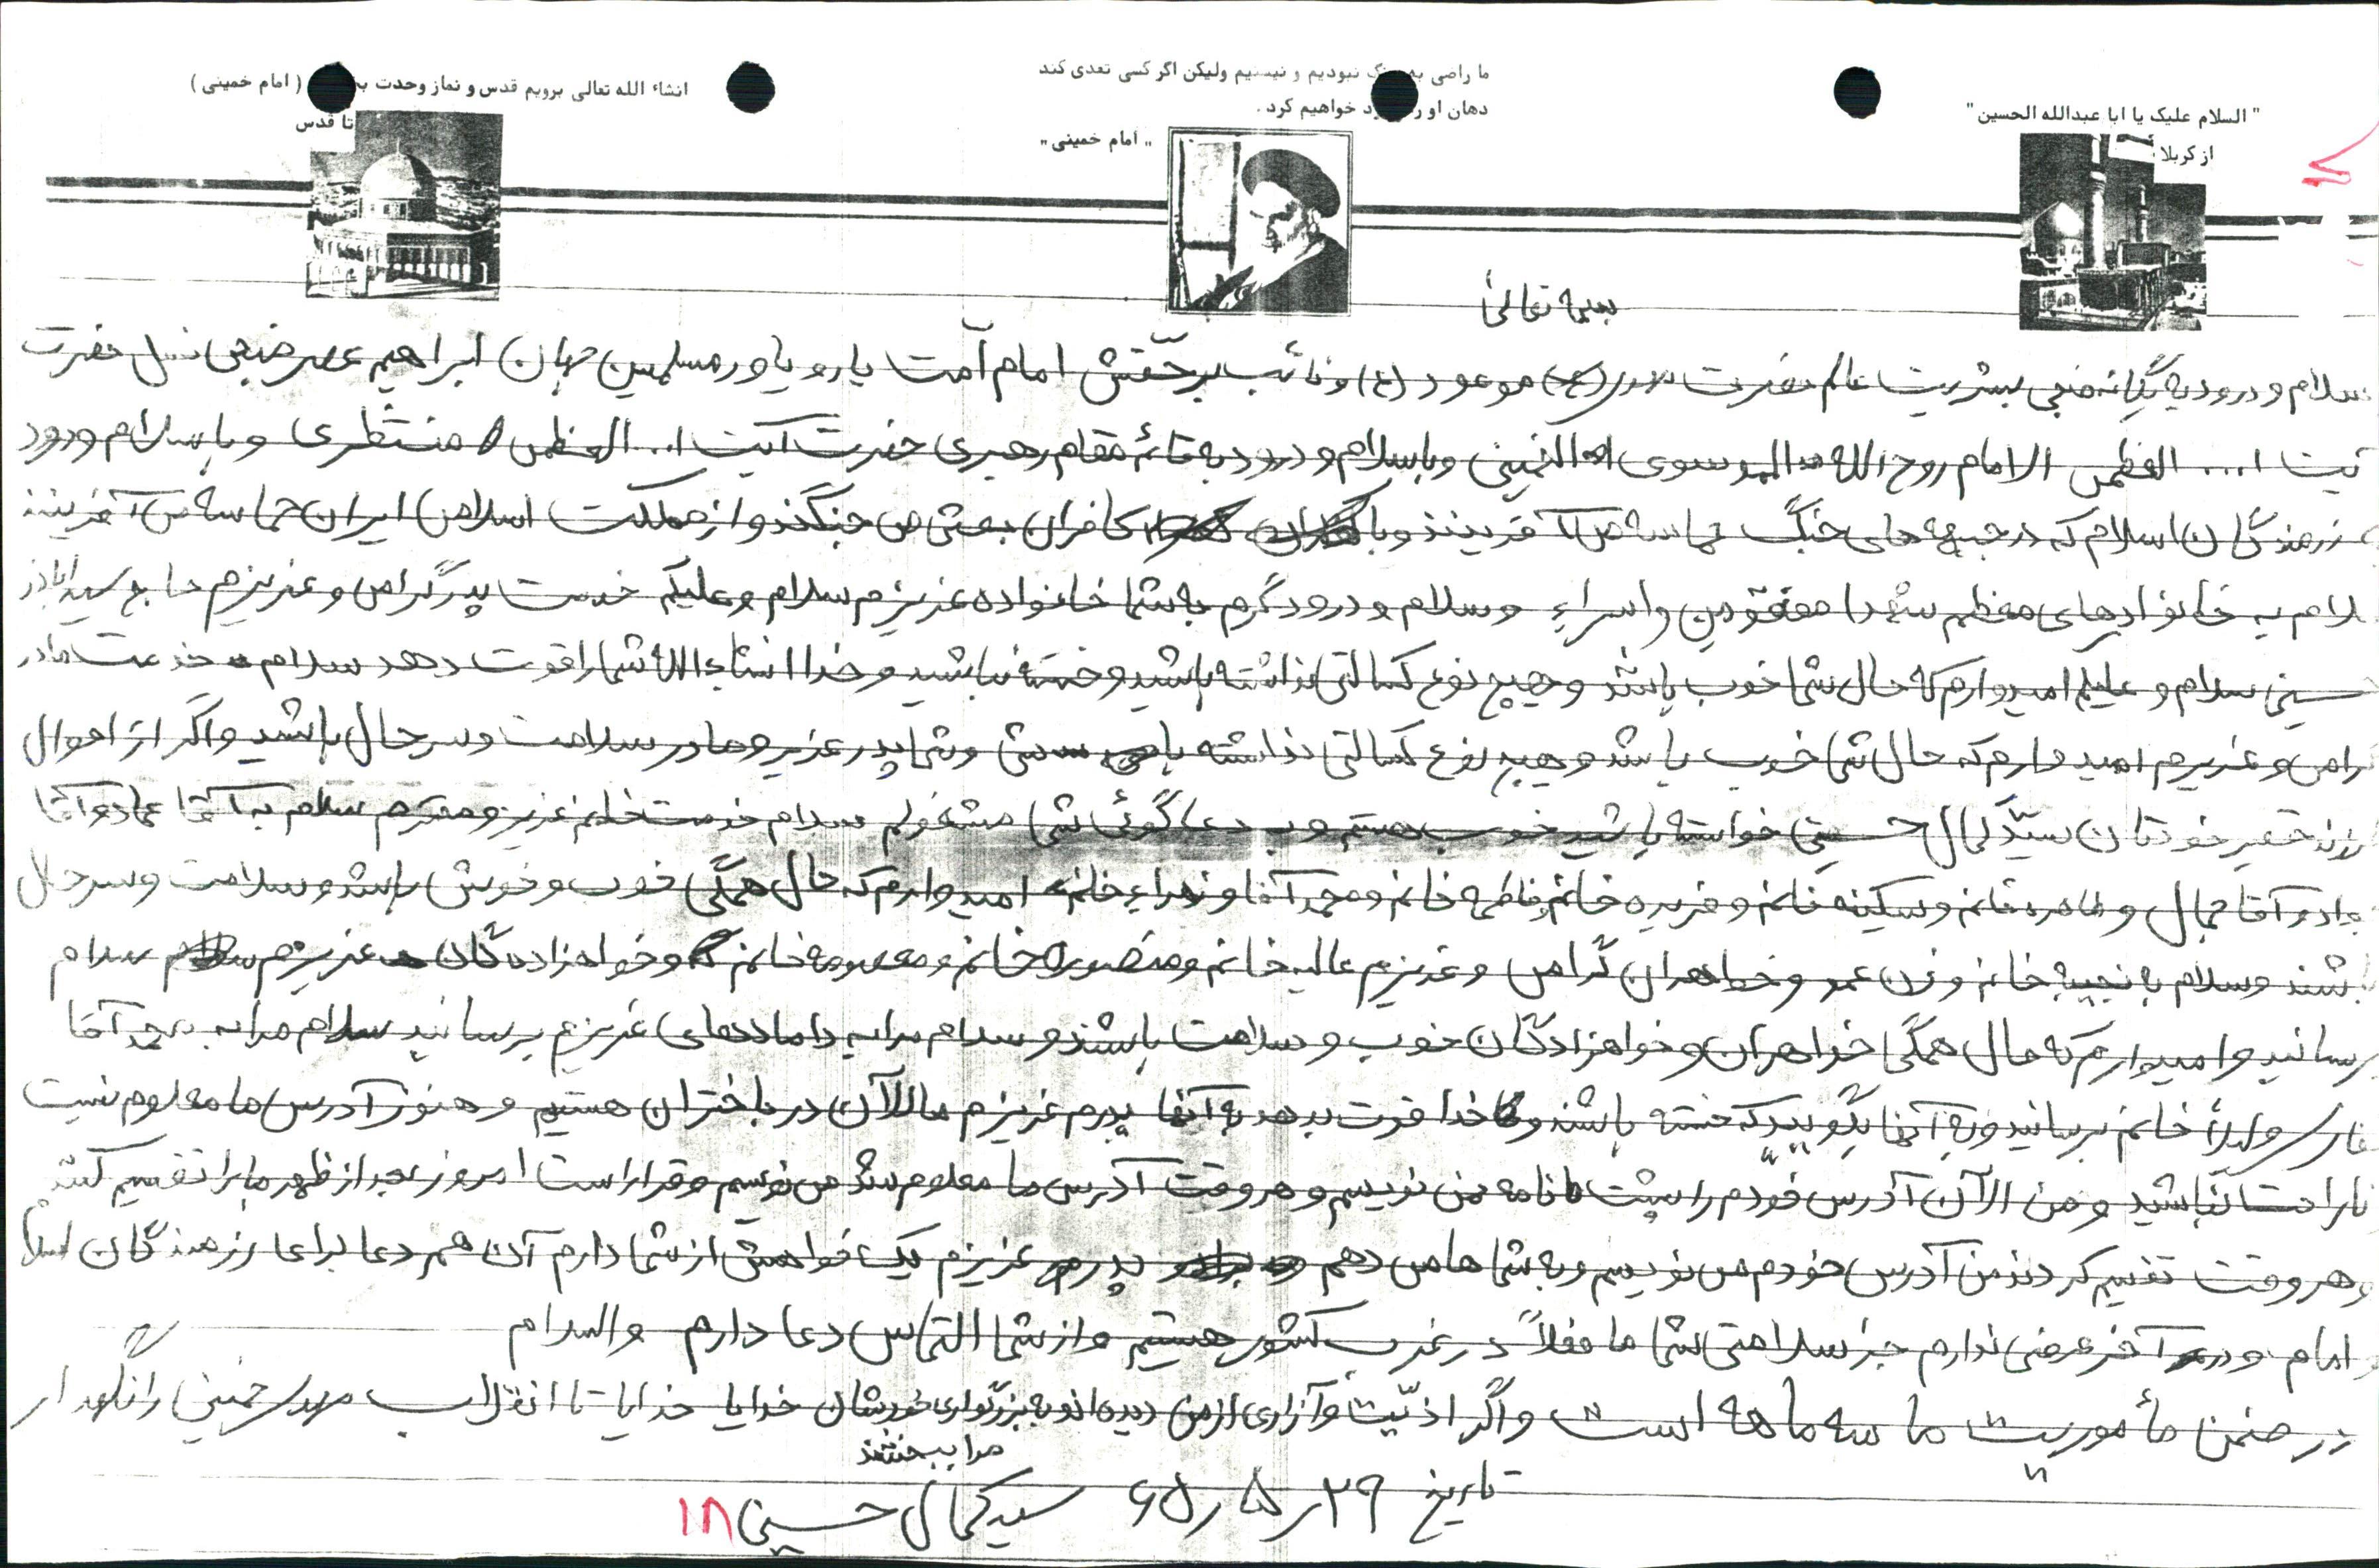 " السلام علیک یا ابا عبدالله الحسین"
از کربلا
ما راضی به نبودیم و نیستیم ولیکن اگر کسی تعدی کند
دهان او خواهیم کرد .
" امام خمینی "
انشاء الله تعالی برویم قدس و نماز وحدت ( امام خمینی )
تا قدس
بسمه تعالی
سلام و درود به یگانه منجی بشریت عالم حضرت مهدی (عج) موعود (ع) و نائب برحقش امام امت یار و یاور مسلمین جهان ابراهیم عصر منجی نسل حضرت
آیت ا... العظمی الامام روح الله الموسوی الخمینی و با سلام و درود به قائم مقام رهبری حضرت آیت ا... العظمی منتظری و با سلام و درود
رزمندگان اسلام که در جبهه های جنگ حماسه می آفرینند و با کافران بعثی می جنگند و از مملکت اسلامی ایران حماسه می آفرینند
سلام به خانوادهای معظم شهدا مفقودین و اسراء و سلام و درود گرم به شما خانواده عزیزم سلام و علیکم خدمت پدر گرامی و عزیزم حاج سید اباذر
حسینی سلام و علیکم امیدوارم که حال شما خوب باشد و هیچ نوع کسالتی نداشته باشید و خسته نباشید و خدا انشاءالله شما را قوت دهد سلام خدمت مادر
گرامی و عزیزم امیدوارم که حال شما خوب باشد و هیچ نوع کسالتی نداشته باشی و شما پدر عزیز و مادر سلامت و سرحال باشید و اگر از احوال
فرزند حقیر خودتان سید کمال حسینی خواسته باشید خوب هستم و به دعاگوئی شما مشغولم سلام خدمت خانم عزیز و محترم سلام به آقا عماد و آقا
جواد و آقا جمال و طاهره خانم و سکینه خانم و فریده خانم فاطمه خانم و محمد آقا و زهراء خانم امیدوارم که حال همگی خوب و خوش باشد و سلامت و سرحال
باشند و سلام به نجیبه خانم و زن عمو و خواهران گرامی و عزیزم عالیه خانم و منصوره خانم و معصومه خانم و خواهرزاده گان عزیزم سلام
برسانید و امیدوارم که حال همگی خواهران و خواهرزادگان خوب و سلامت باشند و سلام مرا به دامادهای عزیزم برسانید سلام مرا به محمد آقا
خانم برسانید و به آنها بگویید که خسته باشند و خدا قوت بدهد به آنها پدرم عزیزم ما الآن در باختران هستیم و هنوز آدرس ما معلوم نیست
ناراحت نباشید و من الآن آدرس خودم را پشت نامه نمی نویسم و هر وقت آدرس ما معلوم شد می نویسم و قرار است امروز بعد از ظهر ما را تقسیم کنند
و هر وقت تقسیم کردند من آدرس خودم می نویسم و به شما ها می دهم پدرم عزیزم یک خواهش از شما دارم آن هم دعا برای رزمندگان اسلام
و امام و در آخر عرضی ندارم جز سلامتی شما ما فعلاً در غرب کشور هستیم و از شما التماس دعا دارم والسلام
در ضمن مأموریت ما سه ماهه است و اگر اذیت و آزاری از من دیده اند به بزرگواری خودشان خدایا خدایا تا انقلاب مهدی خمینی را نگهدار
مرا ببخشند
تاریخ ۲۹ ر ۵ ر ۶۵ سید کمال حسینی ۱۸